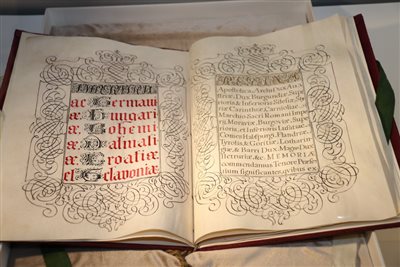 ac Germani
æ Hungari
æ Bohemi
æ Dalmati
æ Croatiæ
et Sclavoniæ
REGINA
Apostolica, Archidux Aus
triæ, Dux Burgundiæ, Supe
rioris & Inferioris Silesiæ, Sty
riæ, Carinthiæ, Carnioliæ,
Marchio Sacri Romani Impe
rii, Moraviæ, Burgoviæ, Supe
rioris, et Inferioris Lusatiæ,
Comes Habspurgi, Flandriæ,
Tyrolis, & Goritiæ, Lotharin
giæ, & Barri Dux, Magna Dux
Hetruriæ, &c. MEMORIÆ
commendamus Tenore Præse
ntium significantes, quibus ex